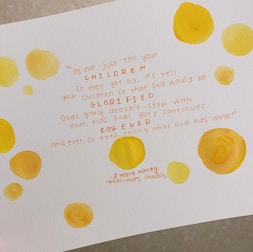 "Do not just tell your
CHILDREN
so they get by, it's tell
your children so that God would be
GLORIFIED.
God's glory doesn't stop with
your kids, God's glory continues
FOREVER
and ever so keep telling what God has done"